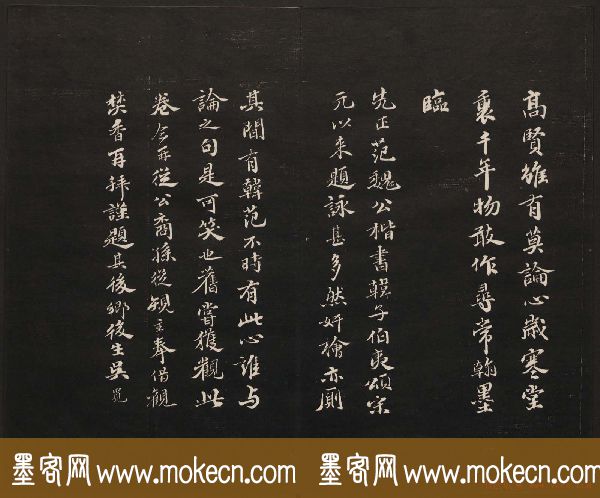 高賢雖有莫論心歲寒堂
裏千年物敢作尋常翰墨
臨
先正范魏公楷書韓子伯夷頌宗
元以来題詠甚多然奸檜亦厠
其間有韓范不時有此心誰与
論之句是可笑也舊嘗獲觀此
卷今再從公裔孫從規奉借觀
焚香再拜謹題其後鄉後生吴寬
墨客网 www.mokecn.com 墨客网 www.mokecn.com